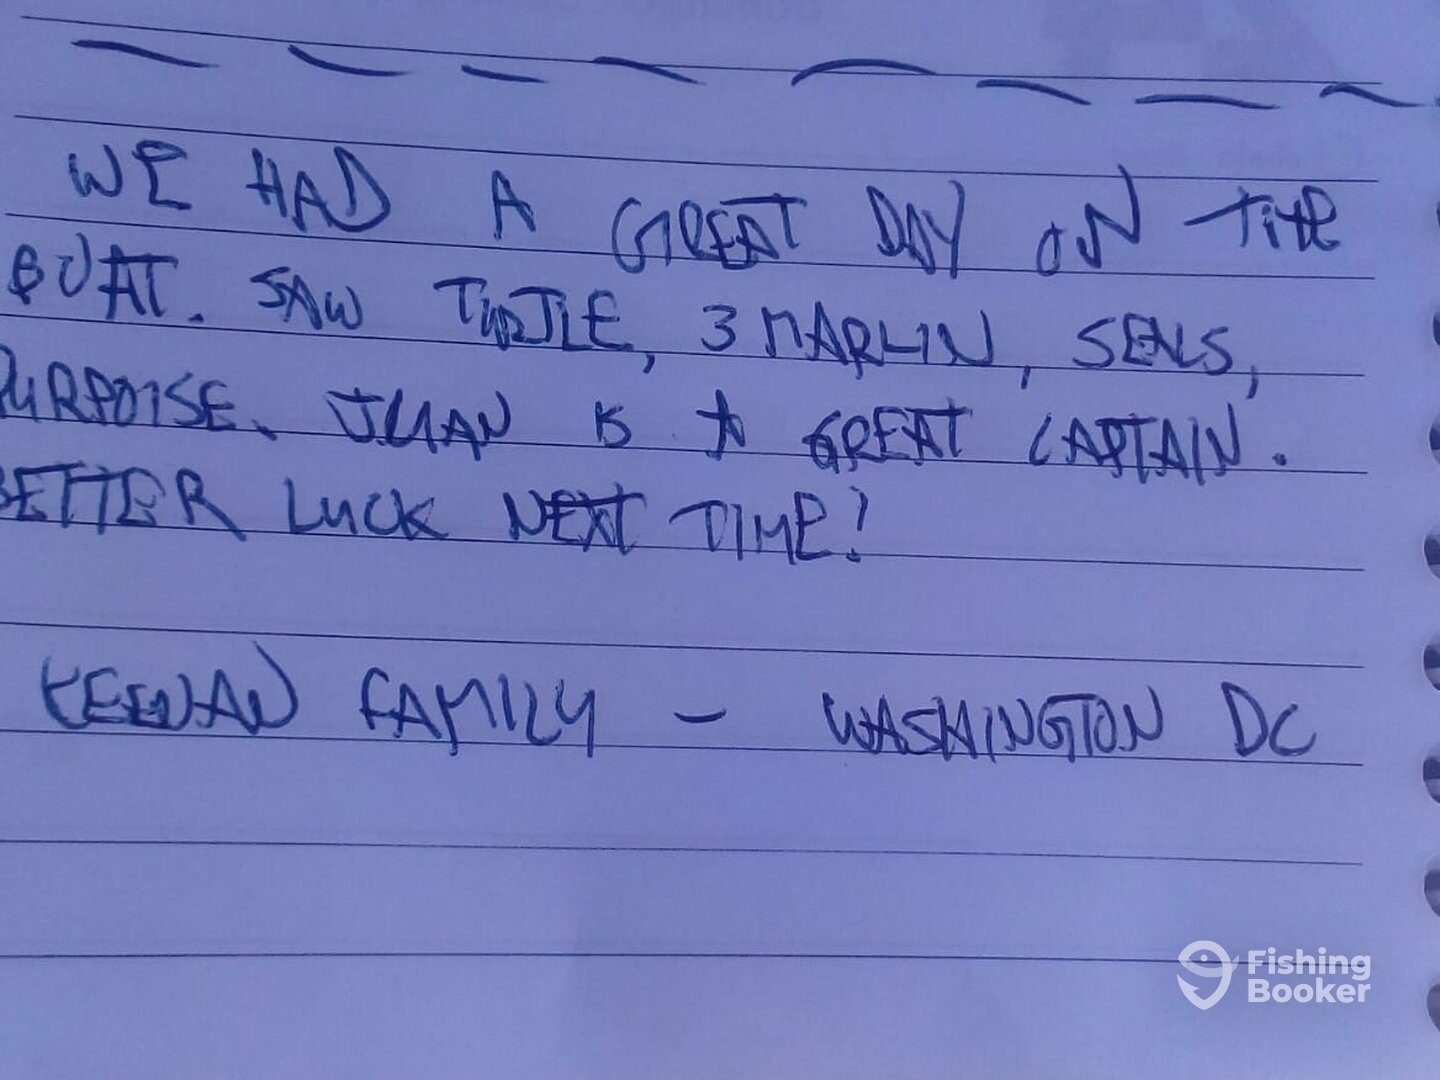 WE HAD A GREAT DAY ON THE
BOAT. SAW TURTLE, 3 MARLIN, SEALS,
PURPOISE. JUAN IS A GREAT CAPTAIN.
BETTER LUCK NEXT TIME!
KEENAN FAMILY - WASHINGTON DC
Fishing
Booker